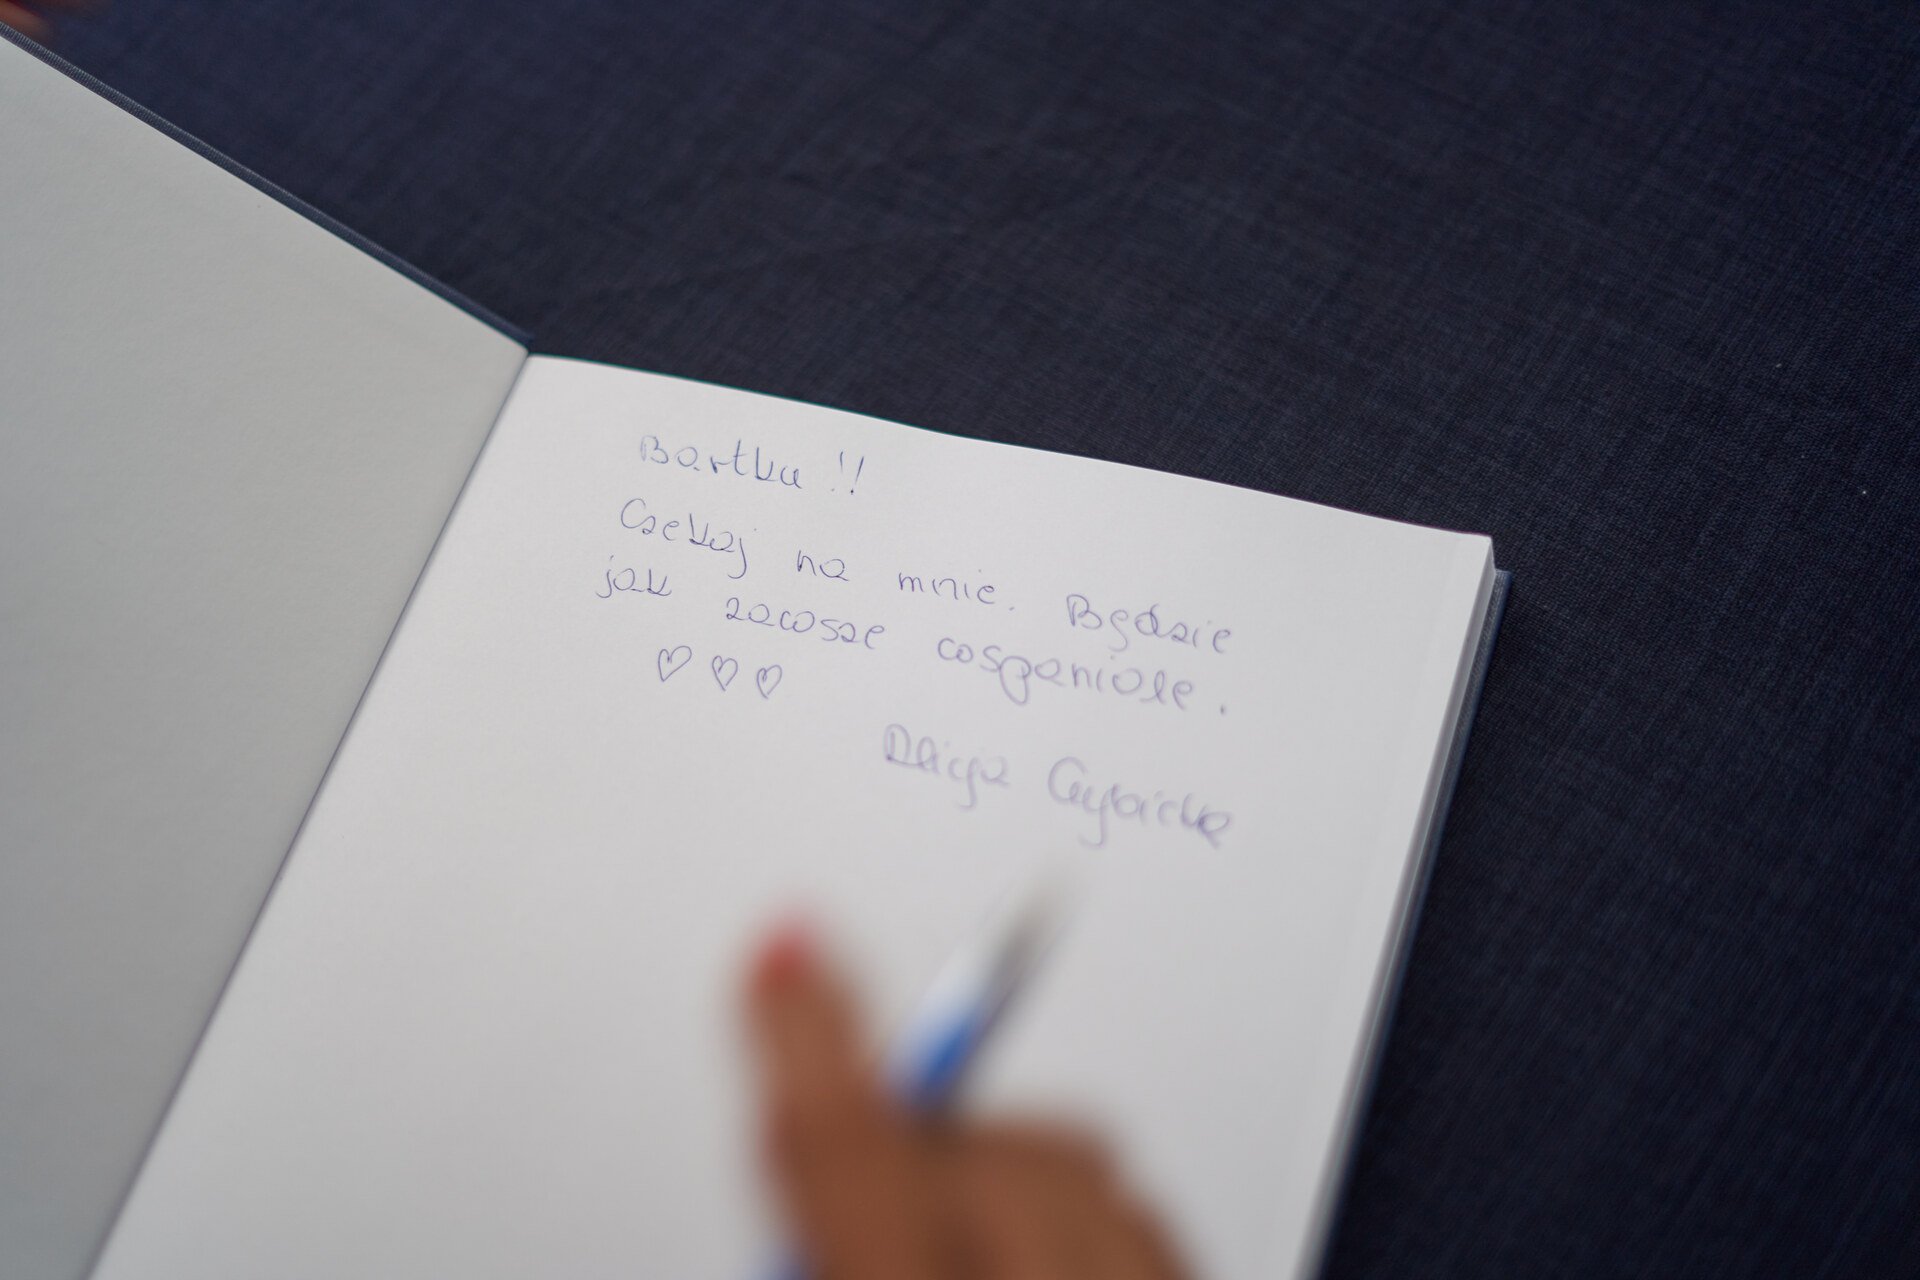 Bartku !!
Czekaj na mnie. Będzie
jak zawsze wspaniale.
♡ ♡ ♡
Alicja